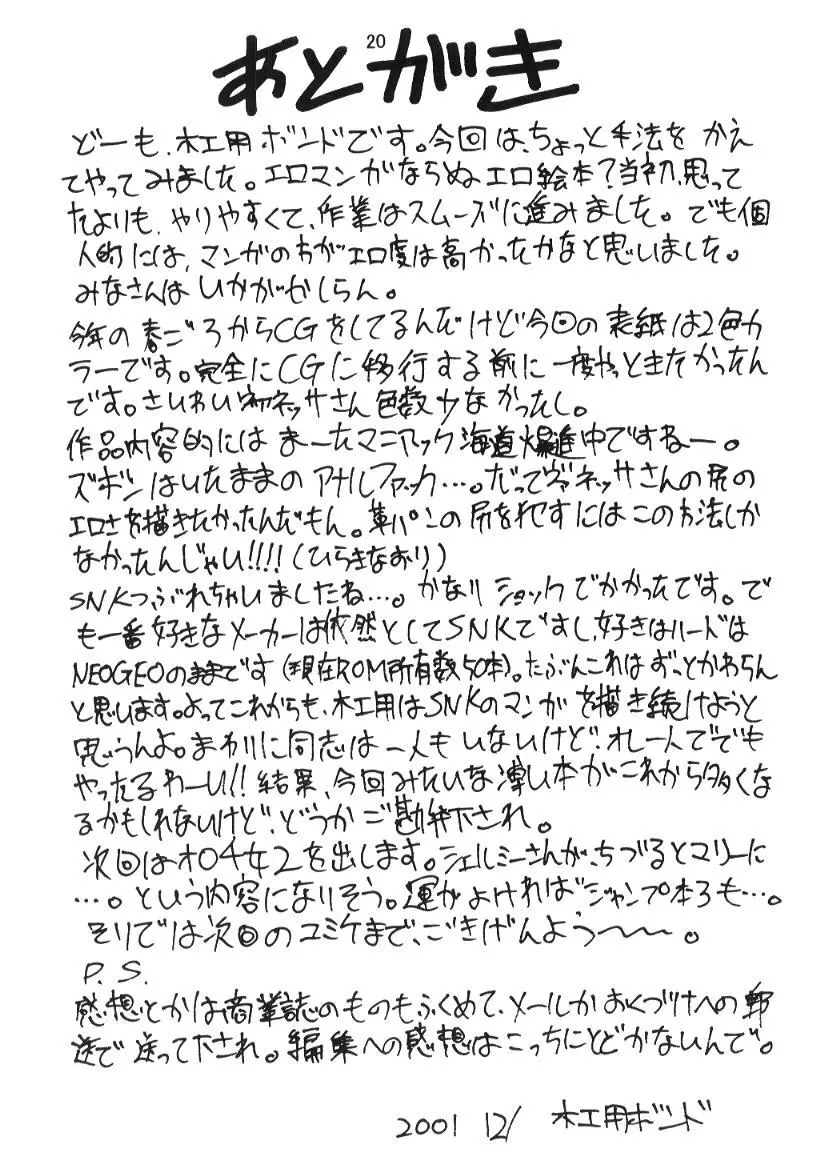 20
あとがき
どーも、木工用ボンドです。今回は、ちょっと手法をかえ
てやってみました。エロマンガならぬエロ絵本?当初、思って
たよりも、やりやすくて、作業はスムーズに進みました。でも個
人的には、マンガの方がエロ度は高かったかなと思いました。
みなさんはいかがかしらん。
今年の春ごろからCGをしてるんだけど今回の表紙は2色カ
ラーです。完全にCGに移行する前に一度やっときたかったん
です。さいわいヴァネッサさん色数少なかったし。
作品内容的にはまーたマニアック海道爆進中ですねー。
ズボンはいたままのアナルファック…。だってヴァネッサさんの尻の
エロさを描きたかったんだもん。革パンの尻を犯すにはこの方法しか
なかったんじゃい!!!!(ひらきなおり)
SNKつぶれちゃいましたね…。かなりショックでかかったです。で
も一番好きなメーカーは依然としてSNKですし、好きなハードは
NEOGEOのままです(現在ROM所有数50本)。たぶんこれはずっとかわらん
と思います。よってこれからも、木工用はSNKのマンガを描き続けようと
思うんよ。まわりに同志は一人もいないけど、オレ一人ででも
やったるわーい!!結果、今回みたいな薄い本がこれから多くな
るかもしれないけど、どうかご勘弁下され。
次回はオロチ女2を出します。シェルミーさんが、ちづるとマリーに
…。という内容になりそう。運がよければジャンプ本3も…。
そりでは次回のコミケまで、ごきげんよう〜〜。
P.S.
感想とかは商業誌のものもふくめて、メールかおくづけへの郵
送で送って下され。編集への感想はこっちにとどかないんで。
2001 12/ 木工用ボンド